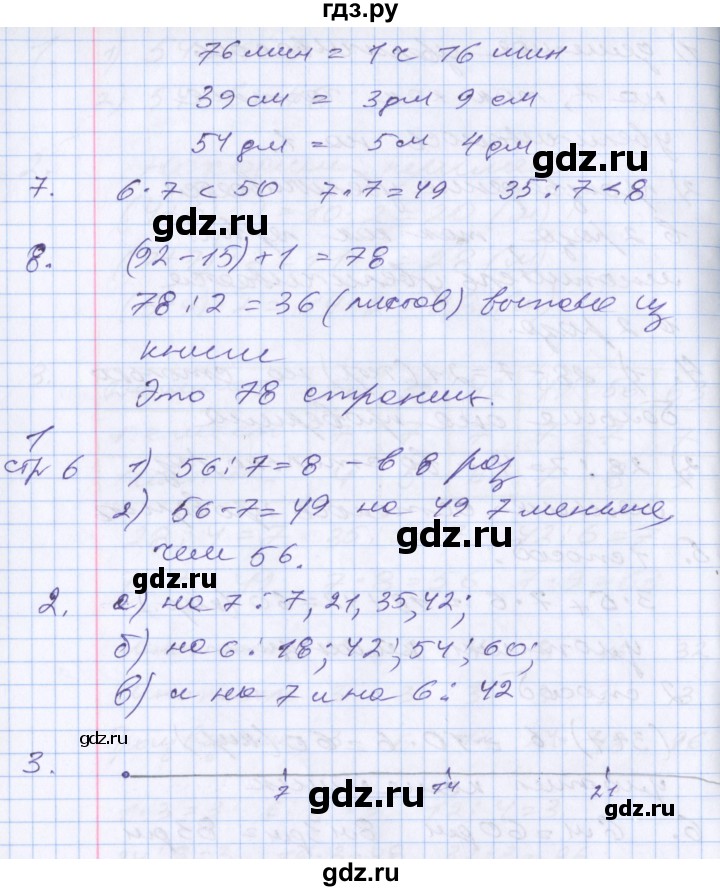 гдз.ру
76 мин = 1 ч 16 мин
39 см = 3 дм 9 см
54 дм = 5 м 4 дм
gdz.ru
7. 6 · 7 < 50 7 · 7 = 49 35 : 7 < 8
gdz.ru
8. (92 - 15) + 1 = 78
78 : 2 = 36 (листов) выпало из
книги
Это 78 страниц.
gdz.ru
1
стр 6 1) 56 : 7 = 8 - в 8 раз
2) 56 - 7 = 49 на 49 7 меньше,
gdz.ru
чем 56.
gdz.ru
2. а) на 7 : 7, 21, 35, 42;
б) на 6 : 18; 42; 54; 60;
в) и на 7 и на 6 : 42
gdz.ru
3.
7 14 21
gdz.ru
gdz.ru
gdz.ru